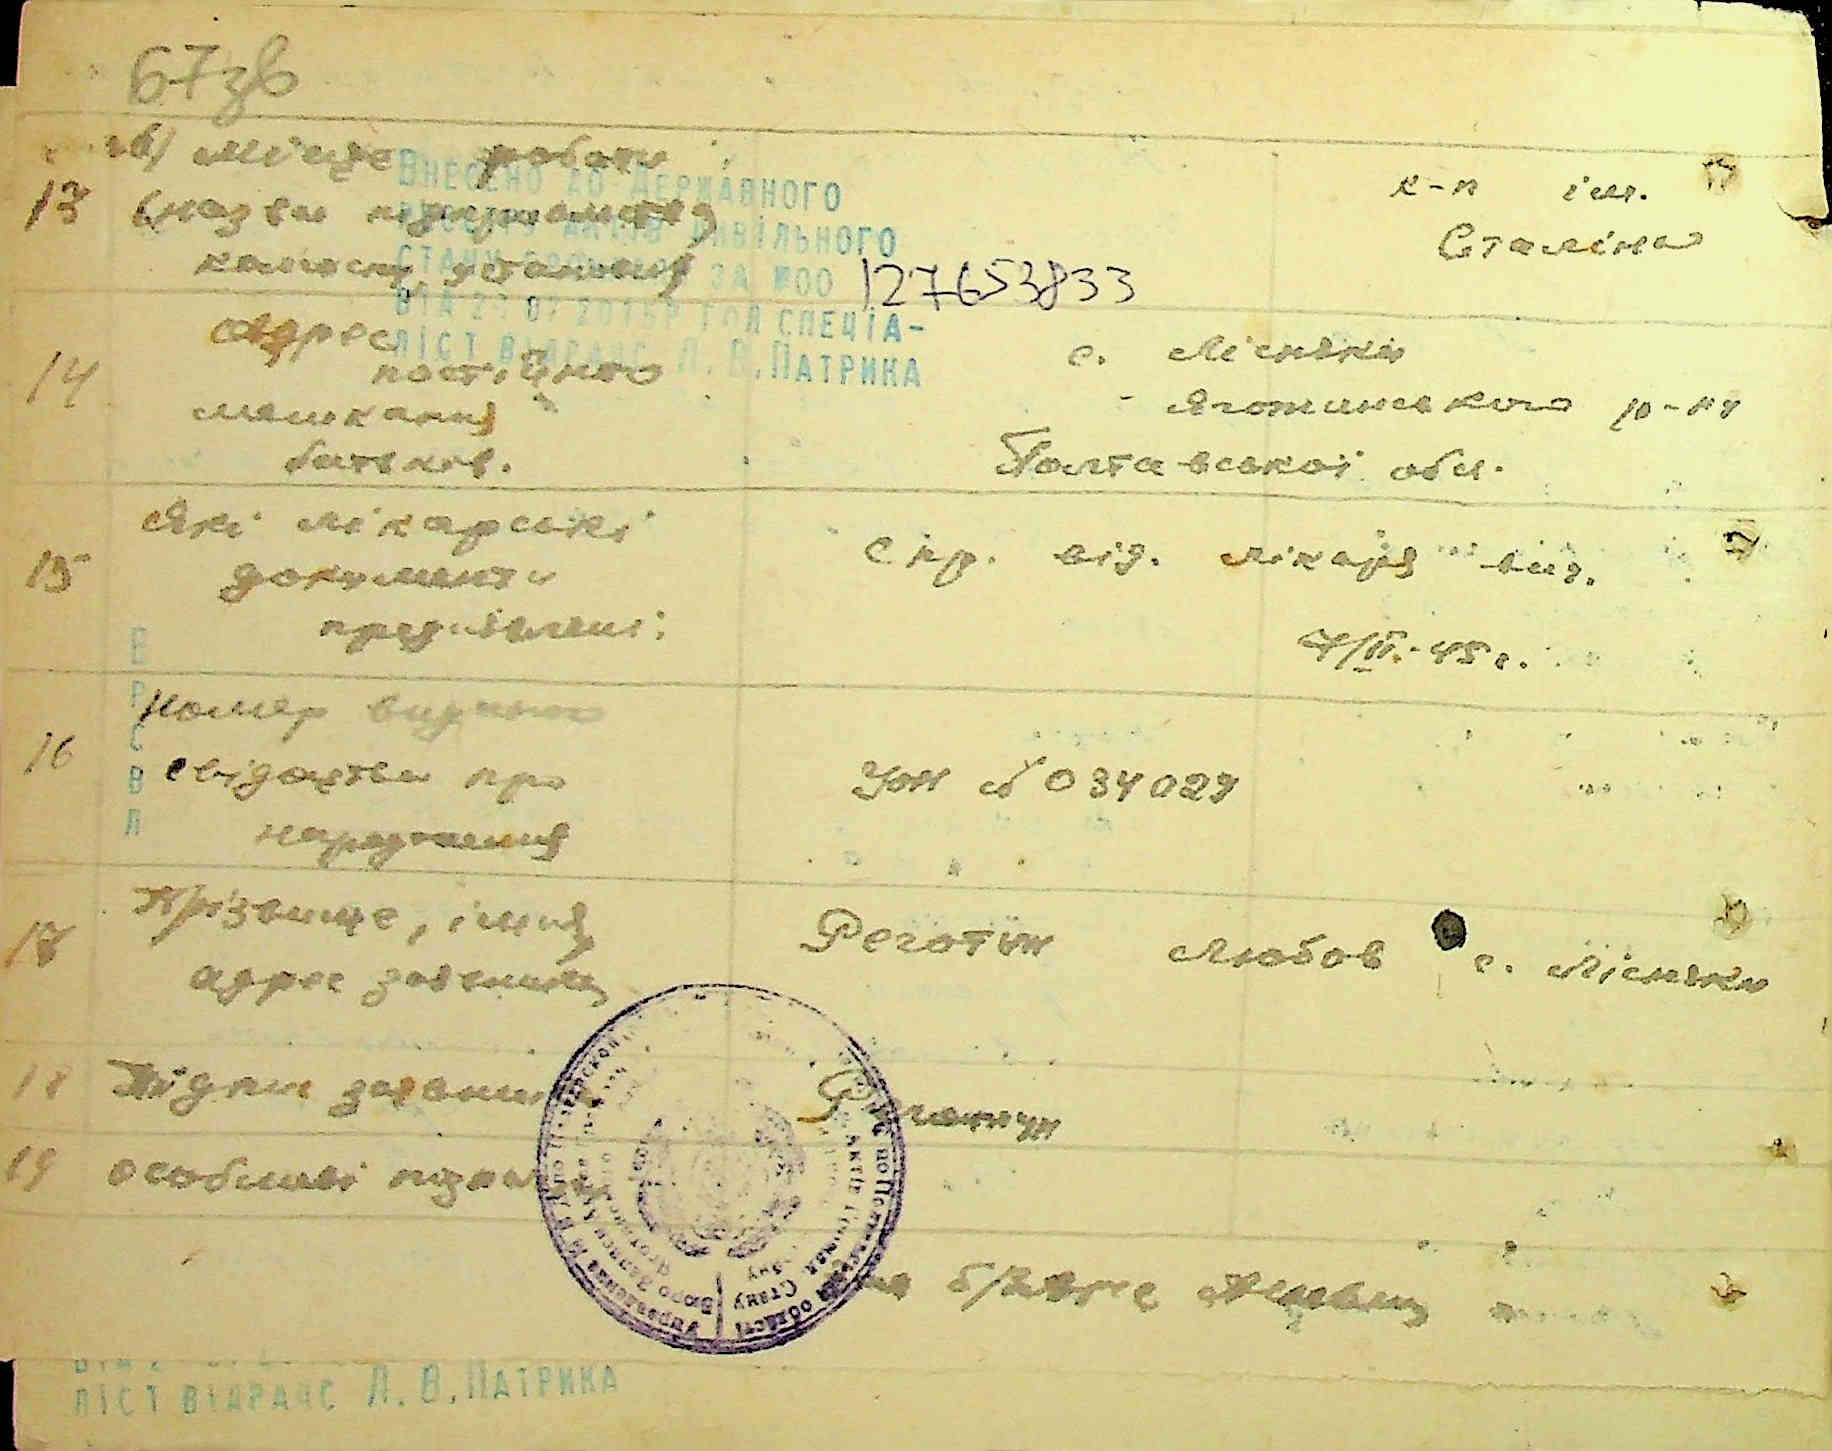 67зв
в) місце роботи
13 (назва підприємства,
колгоспу, установи)
к-п ім.
Сталіна
ВНЕСЕНО ДО ДЕРЖАВНОГО
РЕЄСТРУ АКТІВ ЦИВІЛЬНОГО
СТАНУ ЗА №00 127653833
ВІД 2015Р ГОЛ СПЕЦІА-
ЛІСТ ВІДРАЦС Л.В.ПАТРИКА
14 Адрес
постійного
мешкання
батьків.
с. Лісняки
Яготинського р-ну
Полтавської обл.
15 Які лікарські
документи
пред'явлені:
Спр. від. лікаря вид.
4/II.-45 г.
16 Номер видного
свідоцтва про
народження
УЖ № 034029
17 Прізвище, імня,
адрес заявника
Реготун Любов с. Лісняки
18 Підпис заявника
Реготун
19 Особливі познач
ЛІСТ ВІДРАЦС Л.В.ПАТРИКА